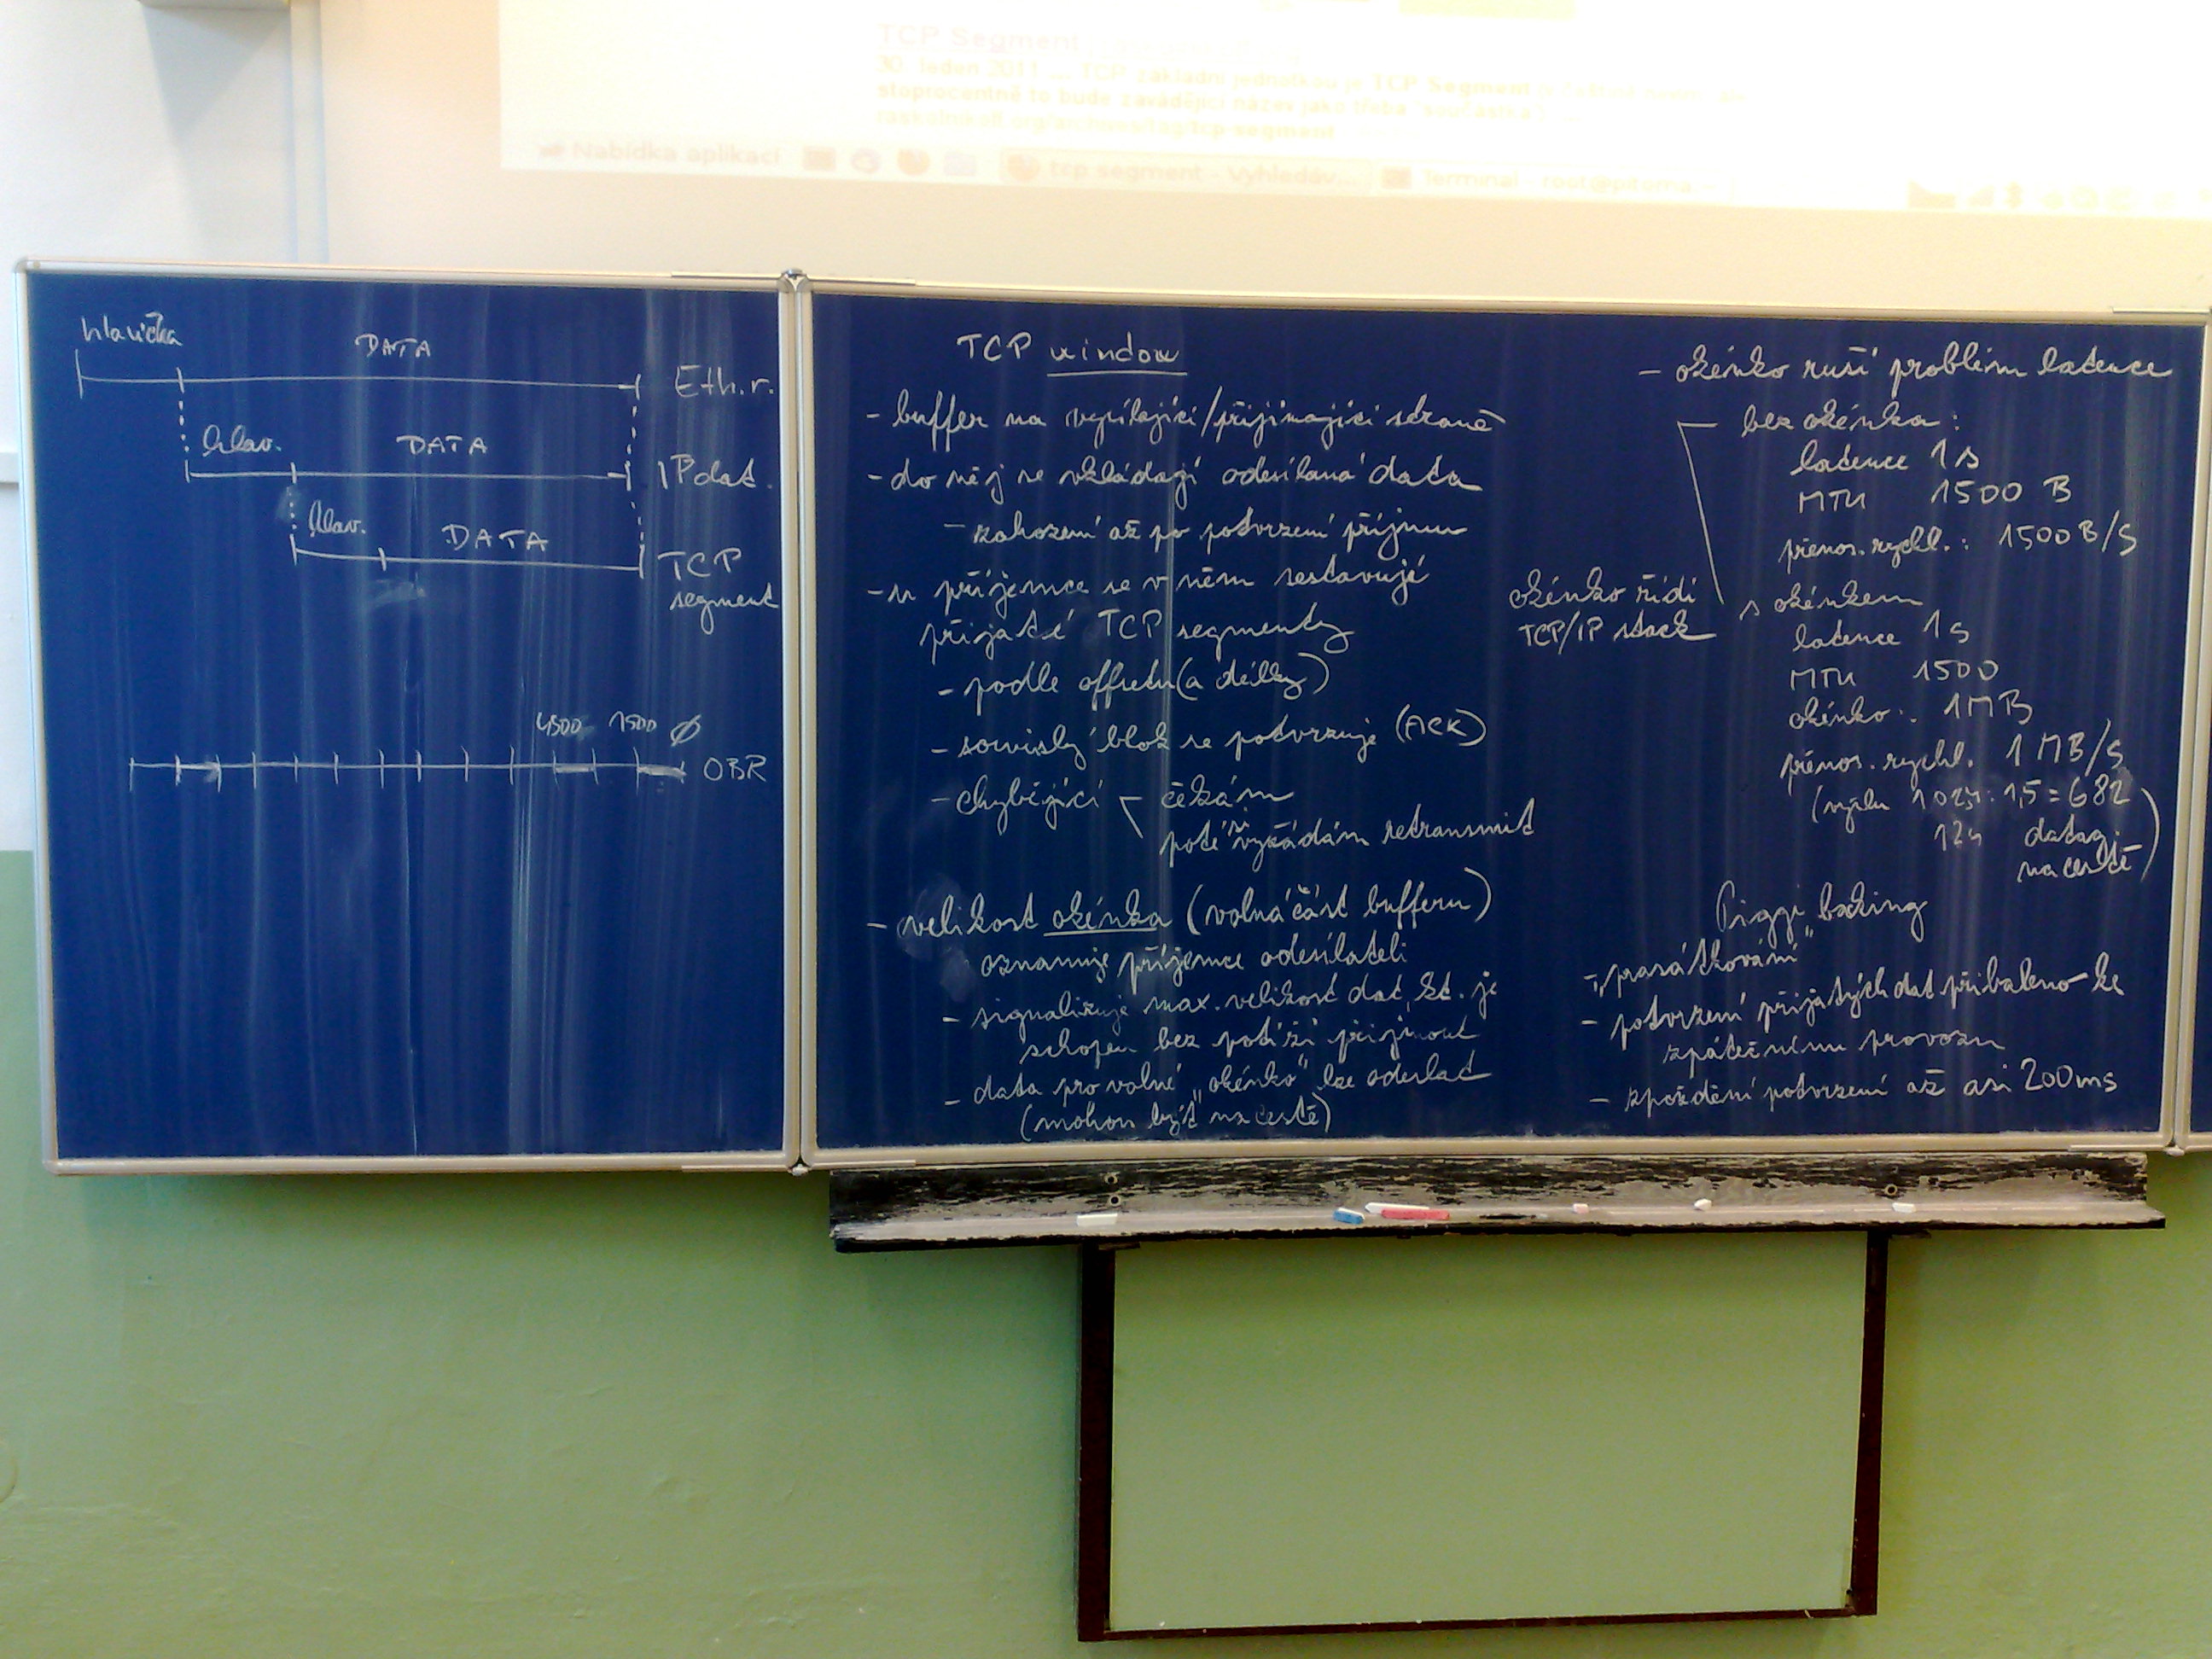 TCP Segment
30. leden 2011 ... TCP základní jednotkou je TCP Segment
stoprocentně to bude zavádějící název jako třeba "součástka"
tcp segment
Nabídka aplikací
tcp segment - Vyhledáv...
Terminal - root@pitoma
hlavička
DATA
Eth. r.
hlav.
DATA
IP dat.
hlav.
DATA
TCP
segment
4500 1500 Ø
OBR
TCP window
- buffer na vysílající/přijímající straně
- do něj se vkládají odesílaná data
- zahození až po potvrzení příjmu
- u příjemce se v něm sestavují
přijaté TCP segmenty
- podle offsetu (a délky)
- souvislý blok se potvrzuje (ACK)
- chybějící
čekám
poté si vyžádám retransmit
- velikost okénka (volná část bufferu)
oznamuje příjemce odesílateli
- signalizuje max. velikost dat, kt. je
schopen bez potíží přijmout
- data pro volné "okénko" lze odeslat
(mohou být "na cestě)
- okénko ruší problém latence
bez okénka:
latence 1s
MTU 1500 B
přenos. rychl.: 1500 B/s
okénko řídí
TCP/IP stack
s okénkem
latence 1s
MTU 1500
okénko: 1MB
přenos. rychl. 1 MB/s
1024 : 1,5 = 682
datag.
na cestě)
Piggi backing
- "prasátkování"
- potvrzení přijatých dat přibaleno ke
zpátečnímu provozu
- zpoždění potvrzení až asi 200ms